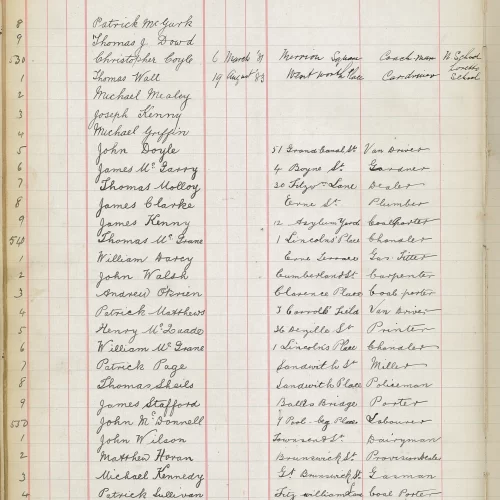 8 Patrick McGurk
9 Thomas J. Dowd
530 Christopher Coyle 6 March '81 Merrion Square Coach man N School
1 Thomas Wall 19 August 83 Wentworth Place Cardriver Loreto School
2 Michael Mealey
3 Joseph Kenny
4 Michael Griffin
5 John Doyle 51 Grand Canal St Van Driver
6 James Mc Garry 4 Boyne St. Gardner
7 Thomas Molloy 30 Fitzwm Lane Dealer
8 James Clarke Erne St. Plumber
9 James Kenny 12 Asylum Yard Coalporter
540 Thomas Mc Grane 1 Lincolns Place Chandler
1 William Darcy Erne Terrace Gas Fitter
2 John Walsh Cumberland St Carpenter
3 Andrew O'Brien Clarence Place Coal porter
4 Patrick Matthews 3 Carrolls Field Van Driver
5 Henry McQuade 36 Denzille St Printer
6 William McGrane 1 Lincoln's Place Chandler
7 Patrick Page Sandwith St Miller
8 Thomas Sheils Sandwith Place Policeman
9 James Stafford Battles Bridge Porter
550 John McDonnell 9 Pool-beg Place Labourer
1 John Wilson Townsend St. Dairyman
2 Matthew Horan Brunswick St. Provision dealer
3 Michael Kennedy Gt Brunswick St Gasman
4 Patrick Sullivan Fitz william Lane Coal Porter